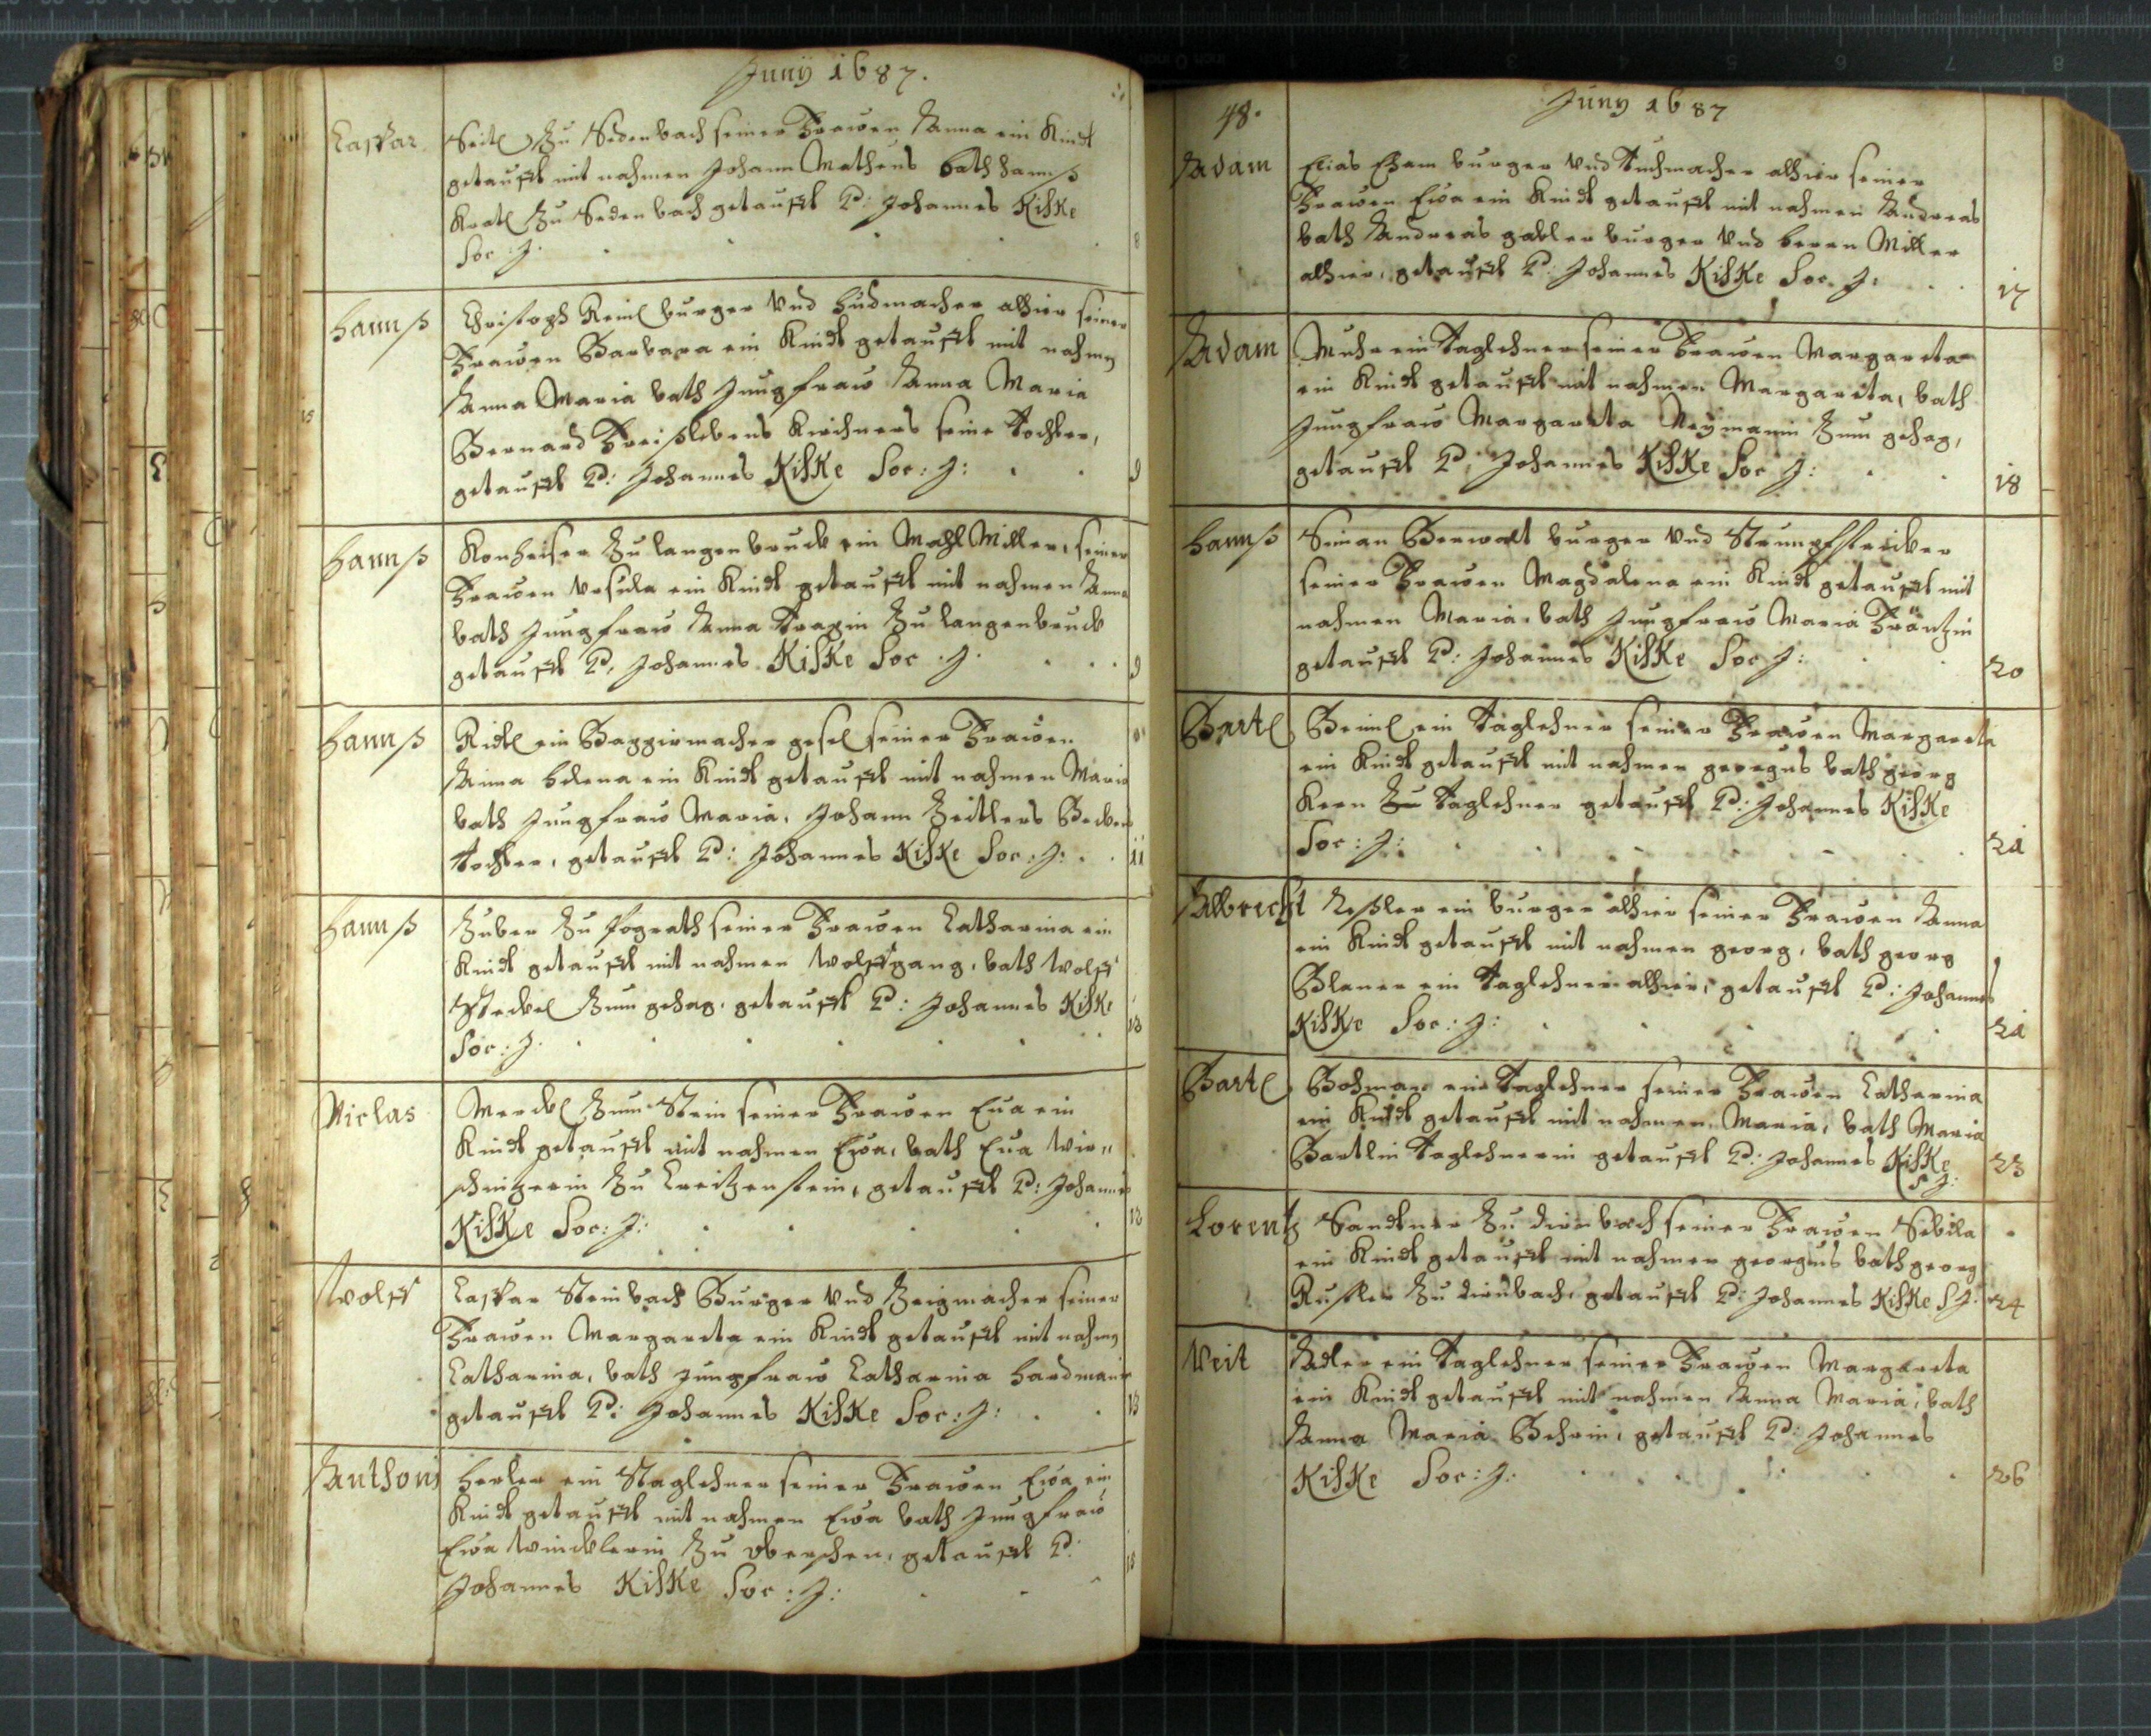 Junij 1687.
Caspar Seitl Zu Sedenbach seiner Frawen Anna ein Kindt
getaufft mit nahmen Johann Matheus bath Hannß
Kratl Zu Sedenbach getaufft P: Johannes Kiske
Soc: J.
8
Hannß Christoph Reinl burger Vnd Hudmacher alhier seiner
Frawen Barbara ein Kindt getaufft mit nahmen
Anna Maria bath Jungfraw Anna Maria
Bernard Freißlebens Kirchners seine Tochter,
getaufft P: Johannes Kiske Soc: J: 9
Hannß Konheiser Zu langenbruck ein Mahl Miller, seiner
Frawen Vrsula ein Kindt getaufft mit nahmen Anna
bath Jungfraw Anna Tragin Zu langenbruck
getaufft P: Johannes Kiske Soc. J. 9
Hannß Ridl ein Bappirmacher gesel seiner Frawen
Anna Helena ein Kindt getaufft mit nahmen Maria
bath Jungfraw Maria, Johann Zeitlers Beckens
Tochter, getaufft P: Johannes Kiske Soc: J: 11
Hannß Huber Zu Pograth seiner Frawen Catharina ein
Kindt getaufft mit nahmen Wolffgang, bath Wolff
Stöckel Zum gehag, getaufft P: Johannes Kiske
Soc: J. 13
Niclas Merckl Zum Stein seiner Frawen Eua ein
Kindt getaufft mit nahmen Ewa, bath Eua Wir-
schnigerin Zu Creitzenstein, getaufft P: Johannes
Kiske Soc: J: 13
Wolff Caspar Steinbach Burger Vnd Zeigmacher seiner
Frawen Margareta ein Kindt getaufft mit nahmen
Catharina, bath Jungfraw Catharina Hardmanin
getaufft P: Johannes Kiske Soc: J: 13
Anthoni Herler ein Taglehner seiner Frawen Ewa ein
Kindt getaufft mit nahmen Ewa bath Jungfraw
Ewa Wincklerin Zu getaufft P:
Johannes Kiske Soc: J:
15
48. Juny 1687
Adam Elias Cham burger Vnd Tuchmacher alhier seiner
Frawen Ewa ein Kindt getaufft mit nahmen Andreas
bath Andreas gabler burger Vnd beren Miller
alhier, getaufft P: Johannes Kiske Soc. J: 17
Adam Muhr ein Taglehner seiner Frawen Margareta
ein Kindt getaufft mit nahmen Margareta, bath
Jungfraw Margareta Neymanin Zum gehag,
getaufft P: Johannes Kiske Soc J: 18
Hannß Siman Berwalt burger Vnd Strumpfstricker
seiner Frawen Magdalena ein Kindt getaufft mit
nahmen Maria, bath Jungfraw Maria Fräntzin
getaufft P: Johannes Kiske Soc J: 20
Bartl Beiml ein Taglehner seiner Frawen Margareta
ein Kindt getaufft mit nahmen georgus bath georg
Kern Zu Taglehner getaufft P: Johannes Kiske
Soc: J: 21
Albricht Keßler ein burger alhier seiner Frawen Anna
ein Kindt getaufft mit nahmen georg, bath georg
Blaner ein Taglehner alhier, getaufft P: Johannes
Kiske Soc: J: 21
Bartl Bohman ein Taglehner seiner Frawen Catharina
ein Kindt getaufft mit nahmen Maria, bath Maria
Bartlin Taglehnerin getaufft P: Johannes Kiske
S J: 23
Lorentz Sandtner Zu dirnbach seiner Frawen Sibila
ein Kindt getaufft mit nahmen georgius bath georg
Rustler Zu dirnbach, getaufft P: Johannes Kiske S J. 24
Veit Adler ein Taglehner seiner Frawen Margareta
ein Kindt getaufft mit nahmen Anna Maria, bath
Anna Maria Behrin, getaufft P: Johannes
Kiske Soc: J: 26